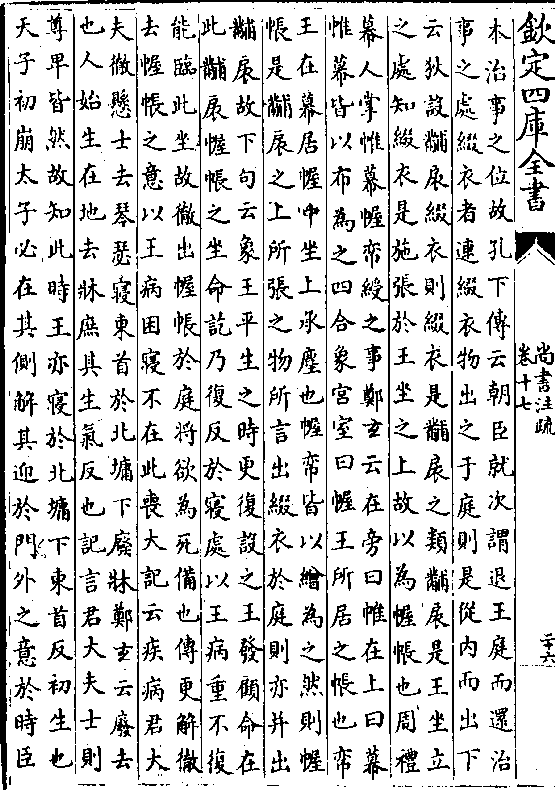 欽定四庫全書
尚書注疏
卷十七
二十六
本治事之位故孔下傳云朝臣就次謂退王庭而還治
事之處綴衣者連綴衣物出之于庭則是從内而出下
云狄設黼扆綴衣則綴衣是黼扆之類黼扆是王坐立
之處知綴衣是施張於王坐之上故以為幄帳也周禮
幕人掌帷幕幄帟綬之事鄭𤣥云在旁曰帷在上曰幕
帷幕皆以布為之四合象宫室曰幄王所居之帳也帟
王在幕居幄中坐上承塵也幄帟皆以繒為之然則幄
帳是黼扆之上所張之物所言出綴衣於庭則亦并出
黼扆故下句云象王平生之時更復設之王發顧命在
此黼扆幄帳之坐命訖乃復反於寢處以王病重不復
能臨此坐故徹出幄帳於庭將欲為死備也傳更解徹
去幄帳之意以王病困寢不在此喪大記云疾病君大
夫徹懸士去琴瑟寢東首於北墉下廢牀鄭𤣥云廢去
也人始生在地去牀庶其生氣反也記言君大夫士則
尊卑皆然故知此時王亦寢於北墉下東首反初生也
天子初崩太子必在其側解其迎於門外之意於時臣